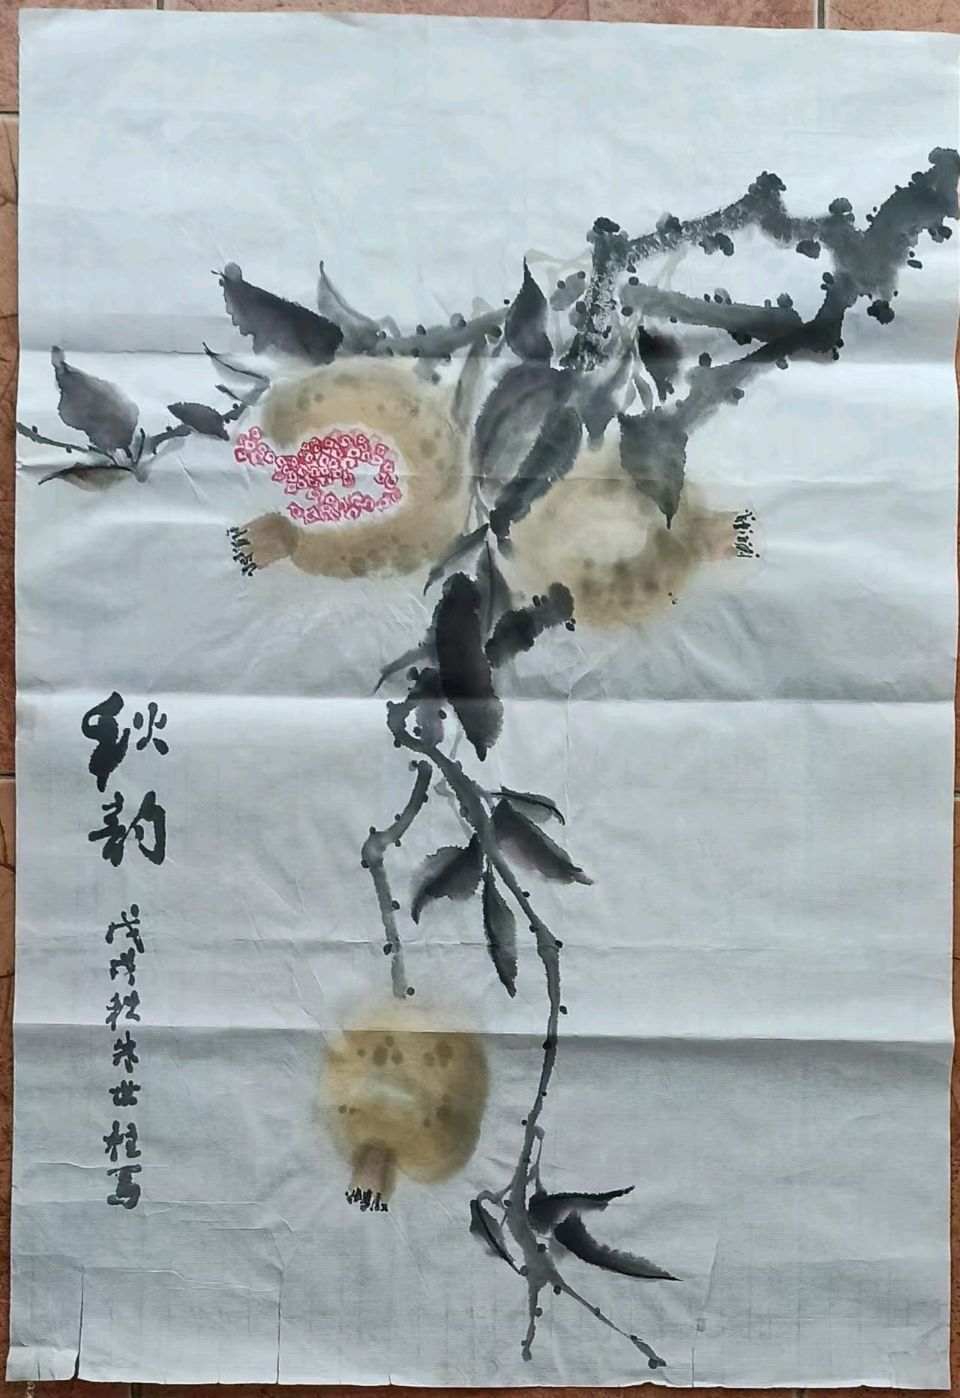 秋韵
戊戌秋朱世柱写